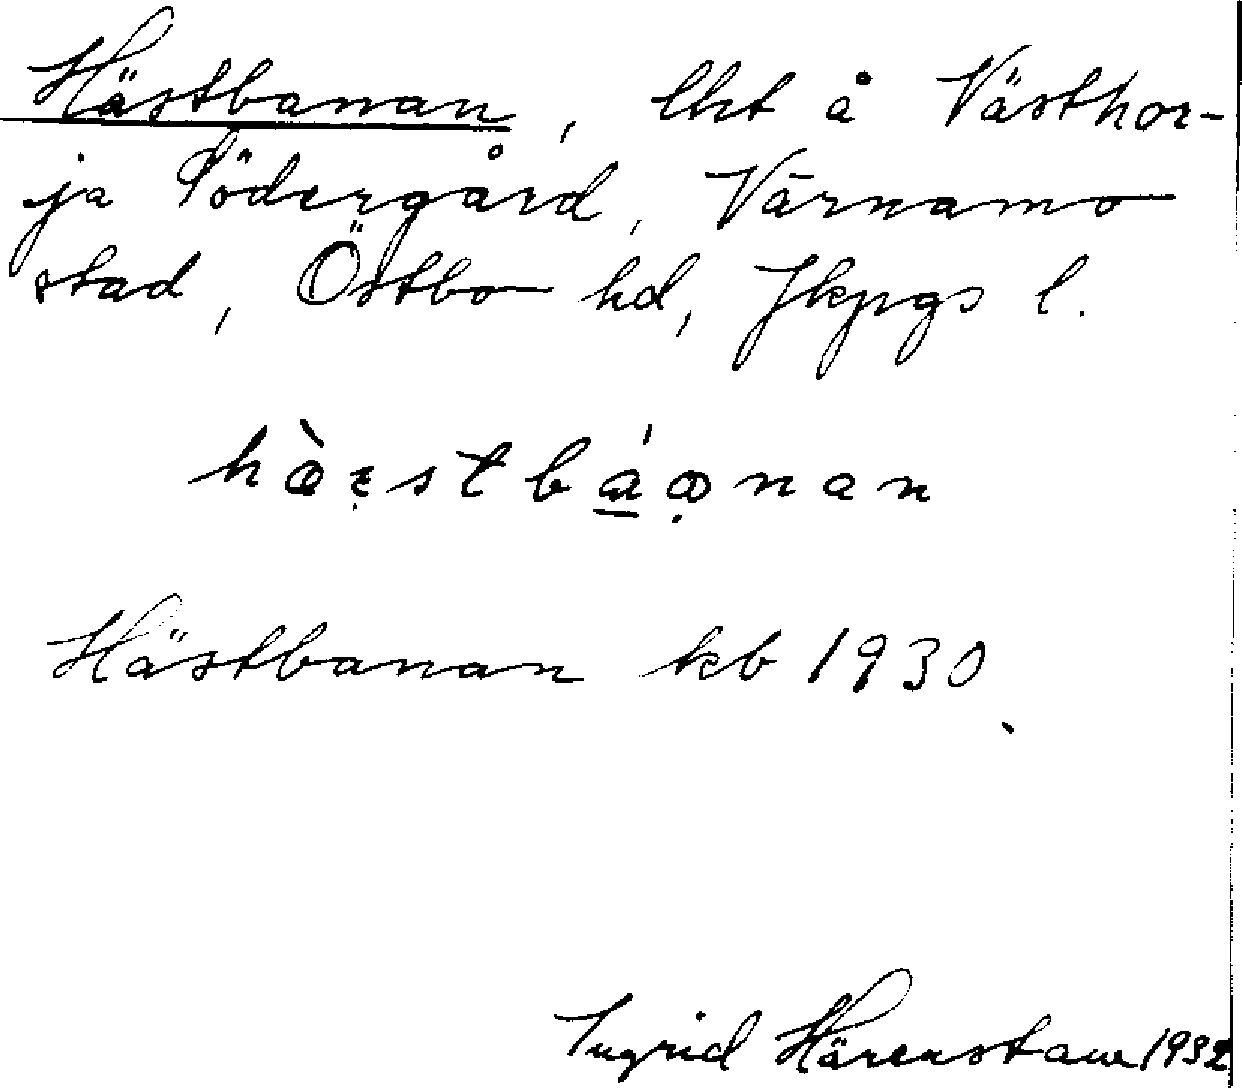 Hästbanan, lht å Västhor-
ja Södergård, Värnamo
stad, Östbo hd, Jkpgs l.
Hästbanan kb 1930
Ingrid Härenstam 1932